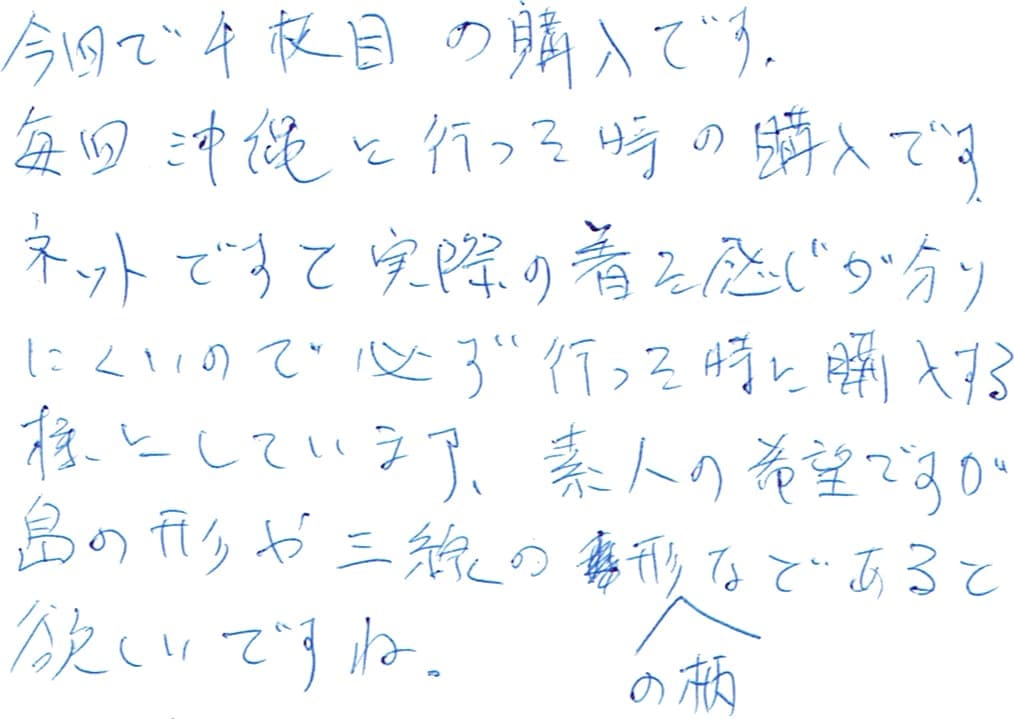 今回で4枚目の購入です.
毎回沖縄に行った時の購入です.
ネットですと実際の着た感じが分り
にくいので必ず行った時に購入する
様にしています、素人の希望ですが
島の形や三線の形などであると
欲しいですね。
の柄